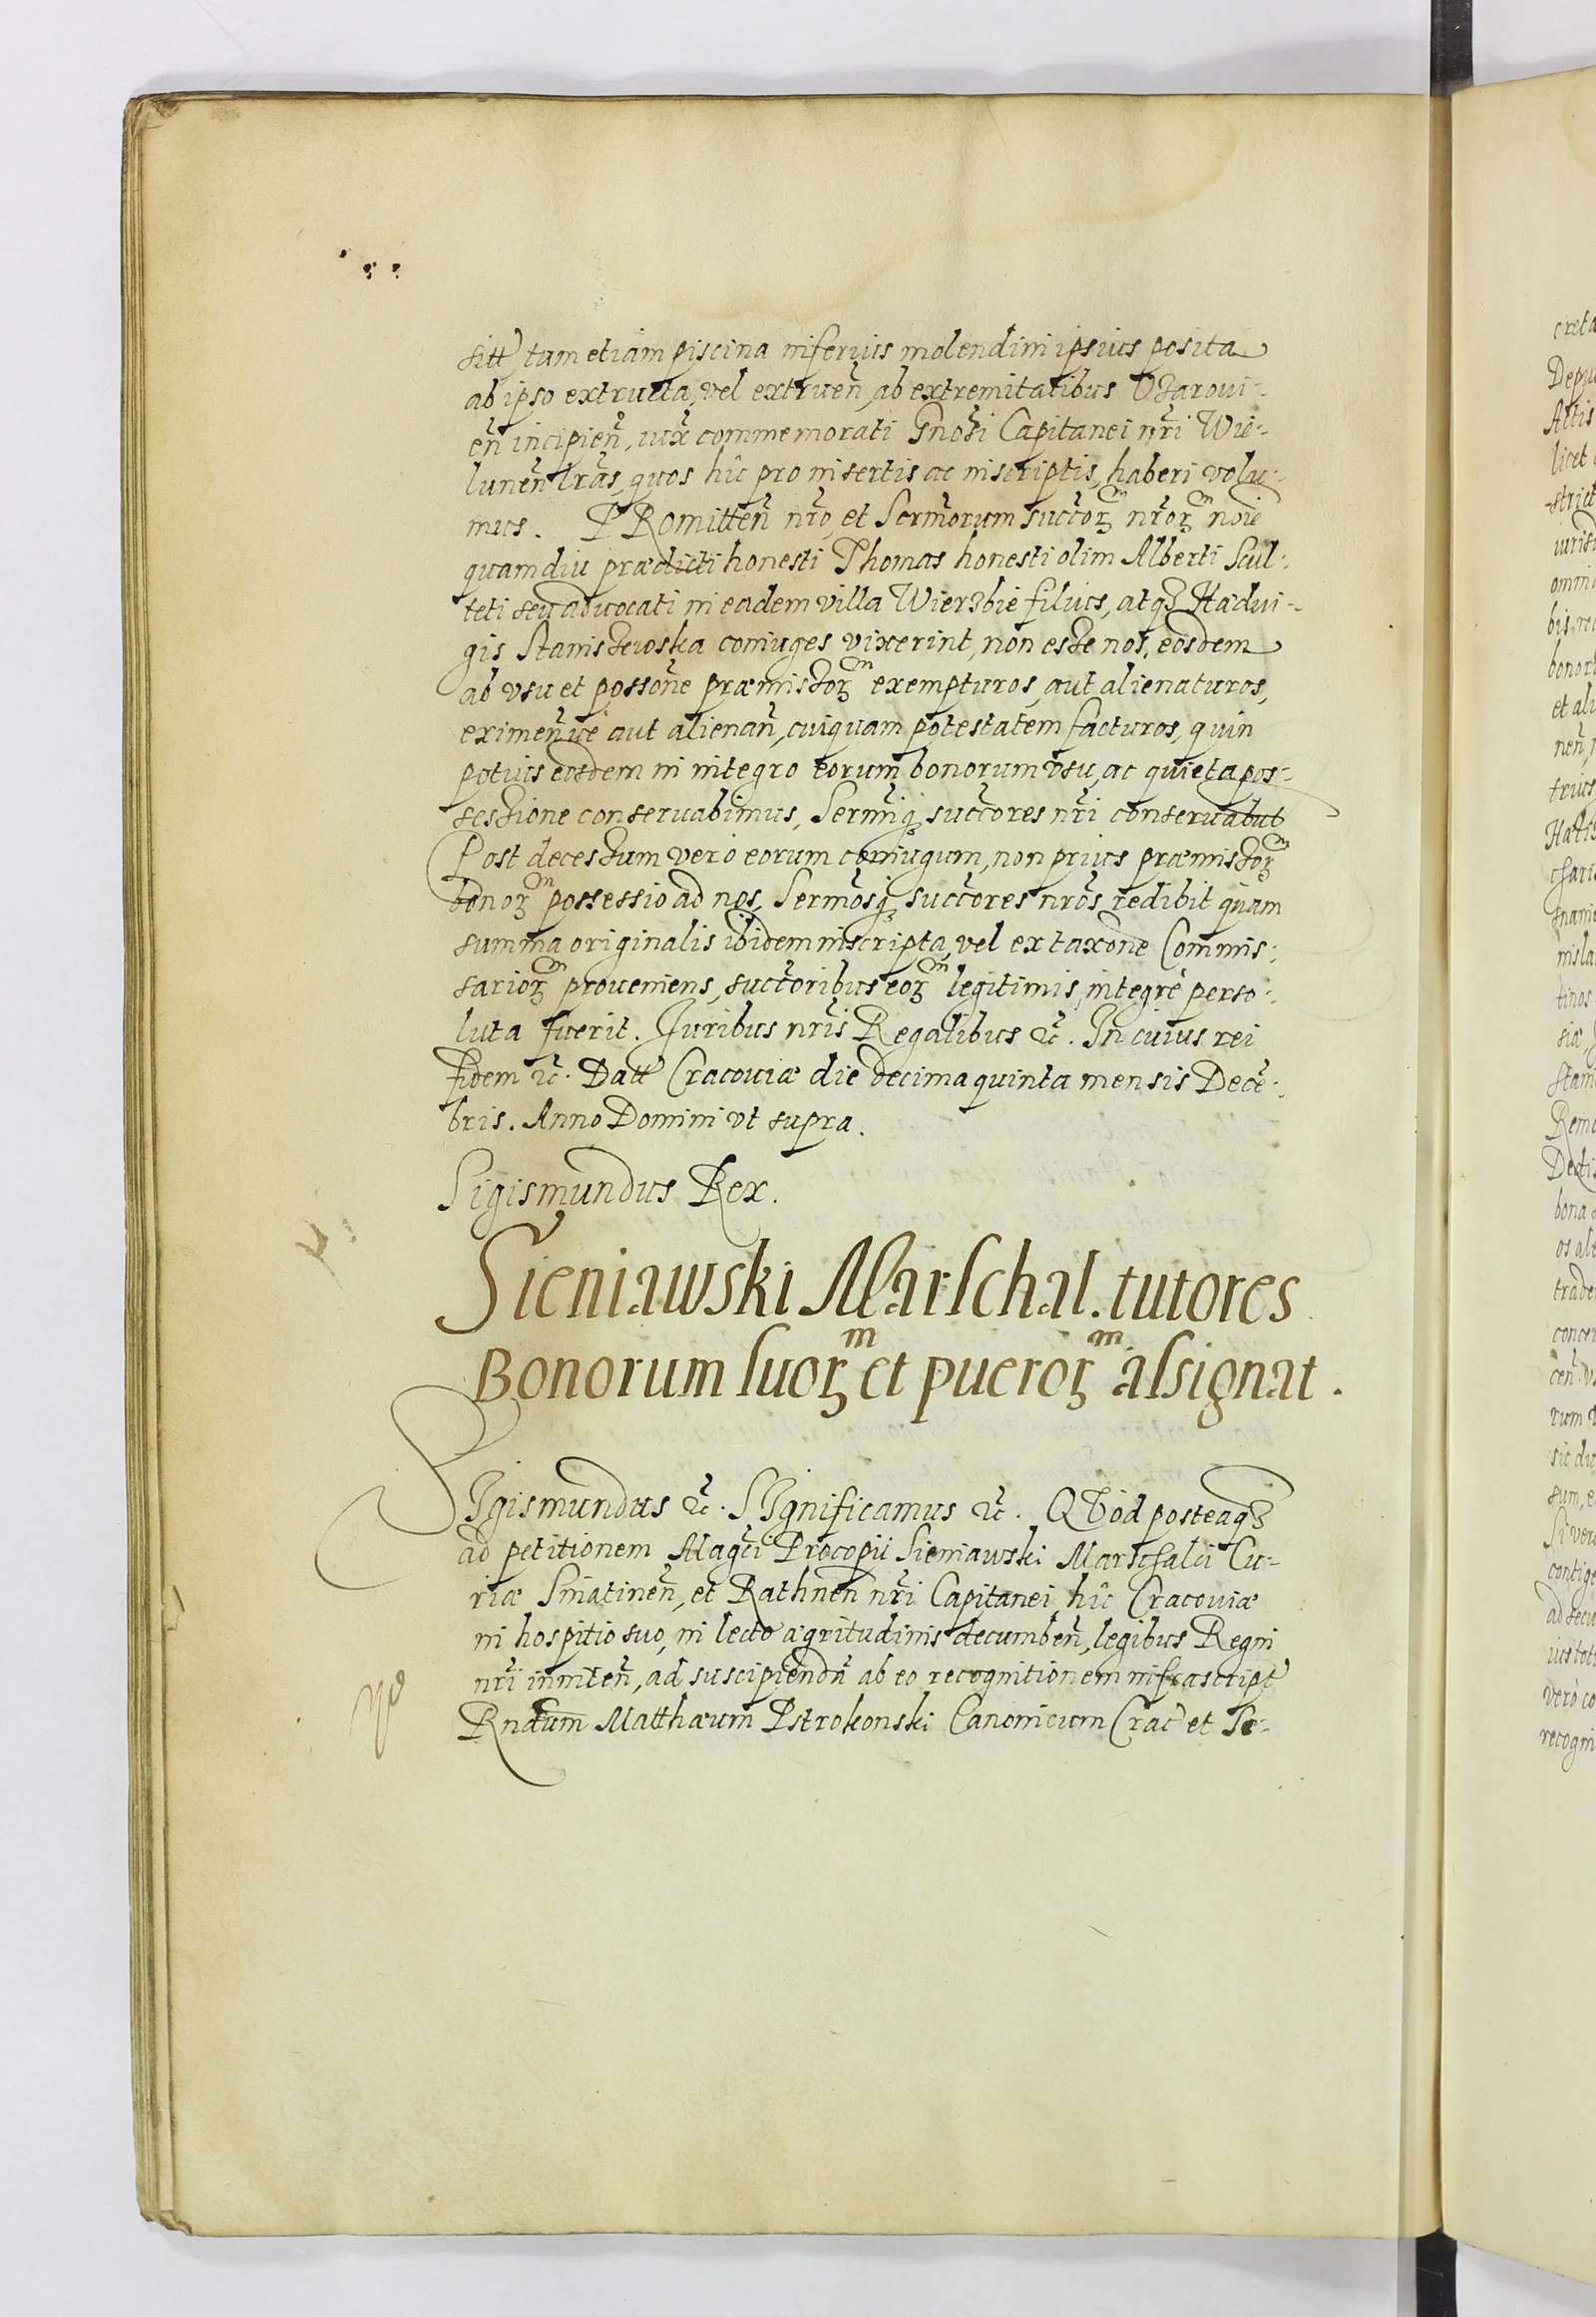 sitt tam etiam piscina inferius molendini ipsius posita
ab ipso extructa, vel extruen̄, ab extremitatibus Ozarovi-
en̄ incipien̄, iux̄ commemorati Gn̄osi Capitanei nr̄i Wie-
lunen̄ lr̄as, quos hîc pro insertis ac inscriptis, haberi volu-
mus. PRomitten̄ nr̄o, et Serm̄orum succ̄oꝝ nr̄oꝝ noīe
quamdiu prædicti honesti Thomas honesti olim Alberti Scul-
teti seu advocati in eadem villa Wierzbie filius, atqꝫ Hadvi-
gis Staniszewska coniuges vixerint, non esse nos, eosdem
ab vsu et poss̄one præmissoꝝ exempturos, aut alienaturos,
eximen̄ue aut alienan̄, cuiquam potestatem facturos, quin
potius eosdem in integro eorum bonorum vsu, ac quieta pos-
sessione conseruabimus, Serm̄iqꝫ succ̄ores nr̄i conseruabūt
Post decessum vero eorum coniugum, non prius præmissoꝝ
bonoꝝ possessio ad nos, Serm̄osqꝫ succ̄ores nr̄os redibit quàm
summa originalis ibidem inscripta, vel ex taxōne Commis-
sarioꝝ proueniens, succ̄oribus eoꝝ legitimis, integrè perso-
luta fuerit. Juribus nr̄is Regalibus ⁊c̄. In cuius rei
fidem ⁊c̄. Datt Cracouiæ die decima quinta mensis Decē-
bris. Anno Domini vt supra.
Sigismundus Rex.
Sieniawski Marschal. tutores
Bonorum suoꝝ et pueroꝝ assignat.
SIgismundus ⁊c̄. SIgnificamus ⁊c̄. QVod posteaqꝫ
ad petitionem Magc̄i Procopii Sieniawski Marschalci Cu-
riæ Sniatinen̄, et Rathnen̄ nr̄i Capitanei hîc Cracouiæ
in hospitio suo, in lecto ægritudinis decumben̄, legibus Regni
nr̄i inniten̄, ad suscipiendā ab eo recognitionem infrascript
Rn̄dum Matthæum Pstrokonski Canonicum Crac̄ et Se-